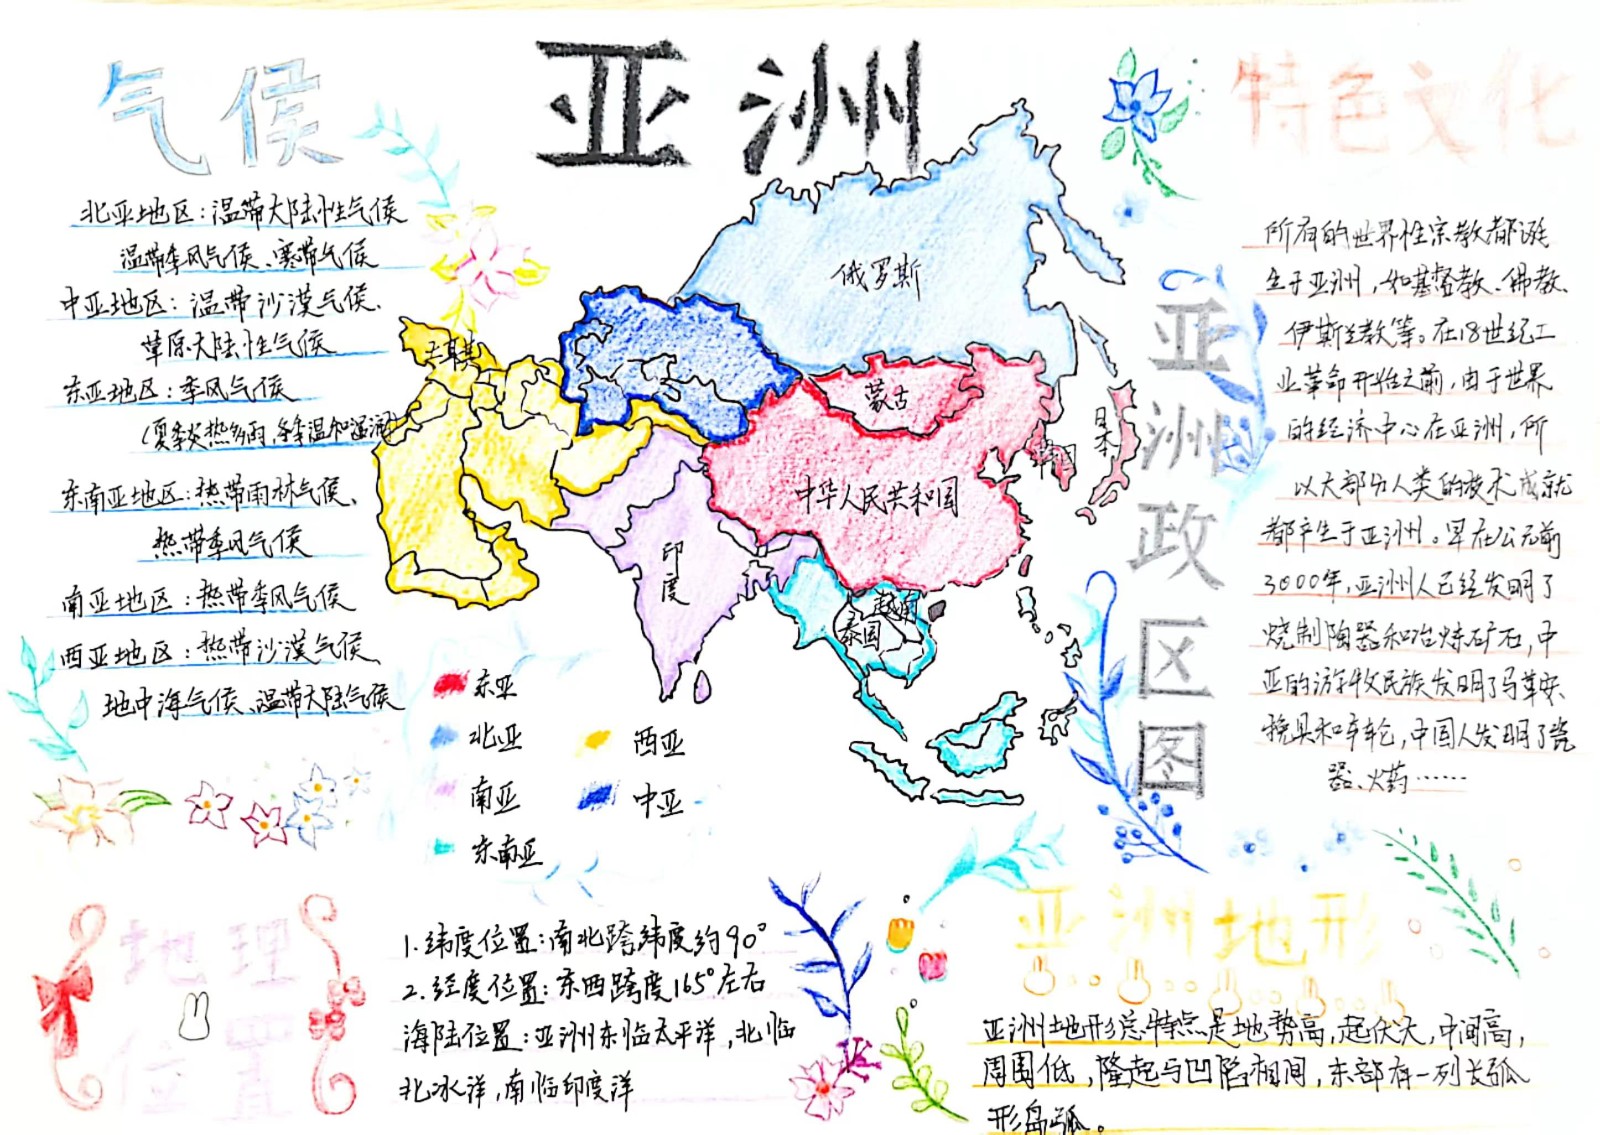 亚洲
气候
北亚地区：温带大陆性气候
温带季风气候、寒带气候
中亚地区：温带沙漠气候、
草原大陆性气候
东亚地区：季风气候
（夏季炎热多雨，冬季温和湿润）
东南亚地区：热带雨林气候、
热带季风气候
南亚地区：热带季风气候
西亚地区：热带沙漠气候、
地中海气候、温带大陆气候
俄罗斯
土耳其
蒙古
日本
中华人民共和国
印度
越南
泰国
东亚
北亚
西亚
南亚
中亚
东南亚
亚洲政区图
特色文化
所有的世界性宗教都诞
生于亚洲，如基督教、佛教、
伊斯兰教等。在18世纪工
业革命开始之前，由于世界
的经济中心在亚洲，所
以大部分人类的技术成就
都产生于亚洲。早在公元前
3000年，亚洲人已经发明了
烧制陶器和冶炼矿石，中
亚的游牧民族发明了马革安、
挽具和车轮，中国人发明了瓷
器、火药……
地理
位置
1.纬度位置：南北跨纬度约90°
2.经度位置：东西跨度165°左右
海陆位置：亚洲东临太平洋，北临
北冰洋，南临印度洋
亚洲地形
亚洲地形总特点是地势高，起伏大，中间高，
周围低，隆起与凹陷相间，东部有一列长弧
形岛弧。